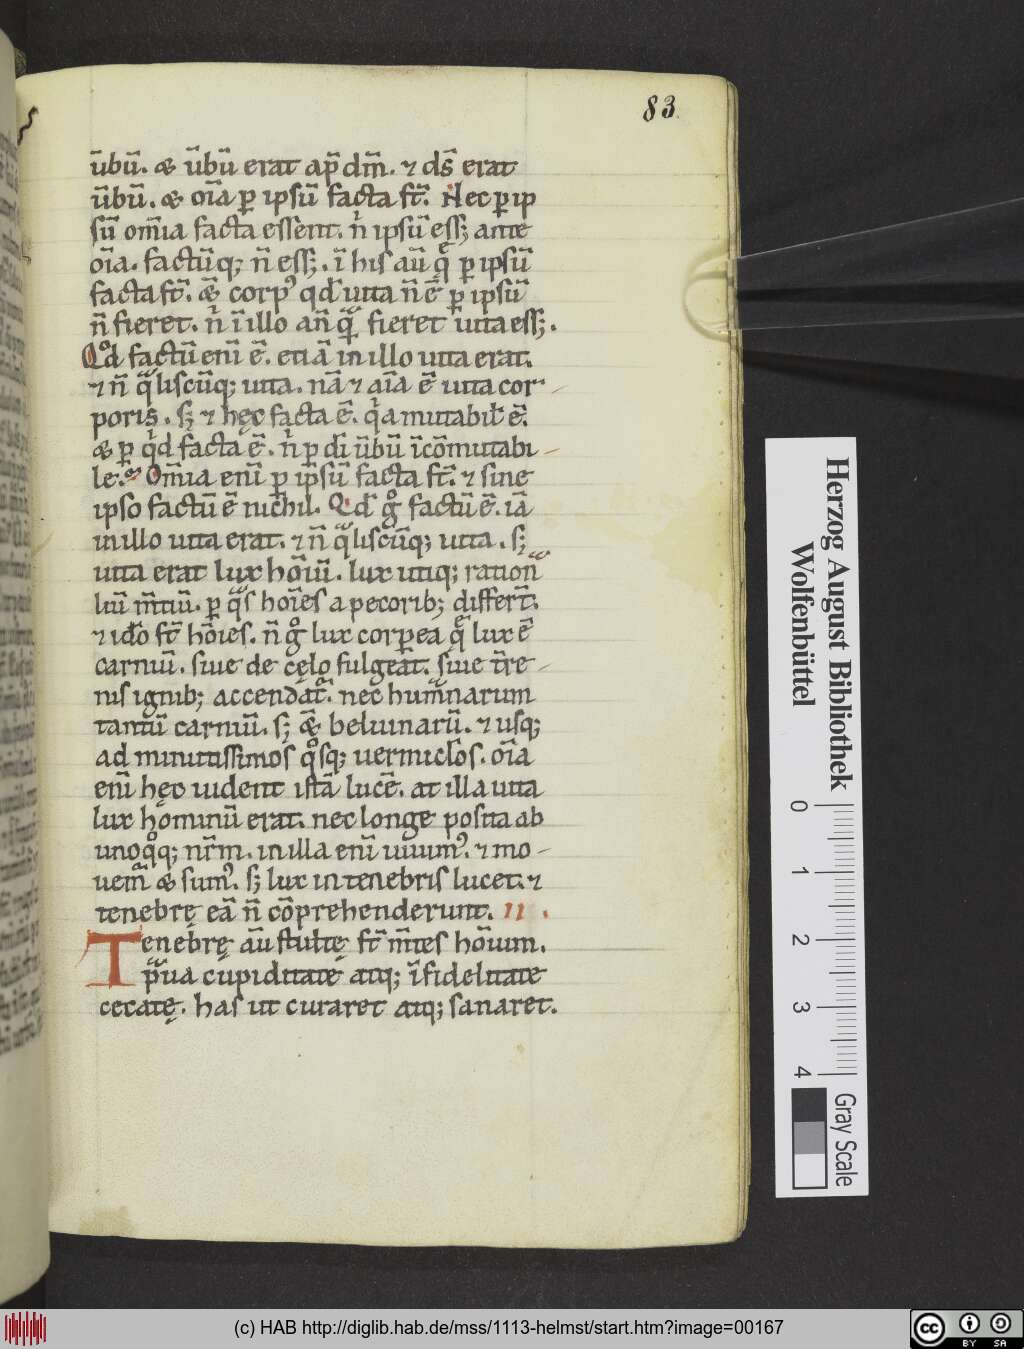 83
ūbū. & ūbū erat ap̄ dm̄. ⁊ ds̄ erat
ūbū. & oīa ꝑ ipsū facta st̄. Nec ꝑ ip
sū om̄ia facta essent. n̄ ipsū ess; ante
oīa. factūq; n̄ ess;. ī his aū q̄ ꝑ ipsū
facta st̄. & corpꝰ qd̄ uita n̄ ē ꝑ ipsū
n̄ fieret. n̄ ī illo an̄ q̄ fieret uita ess;.
Qd factū enī ē. etiā in illo uita erat.
⁊ n̄ q̄liscūq; uita. nā ⁊ aīa ē uita cor-
poris. s; ⁊ hęc facta ē. q̍a mutabił ē.
& ꝑ q̍d facta ē. n̍ ꝑ dī ūbū īcōmutabi-
le. Om̄ia enī ꝑ ip̄sū facta st̄. ⁊ sine
ipso factū ē nichil. Qd̄ gͦ factū ē. iā
in illo uita erat. ⁊ n̄ q̄liscūq; uita. s;
uita erat lux hōiū. lux utiq; ration
liū m̄tiū. ꝑ q̄s hoīes a pecorib; differt̄.
⁊ idō st̄ hōies. n̄ gͦ lux corꝑea q̄ lux ē
carniū. siue de cęlo fulgeāt. siue t̄re-
nis ignib; accendāt. nec humanarum
tantū carniū. s; & beluinarū. ⁊ usq;
ad minutissimos qͦsq; uermicłos. oīa
enī hęc uident istā lucē. at illa uita
lux hominū erat. nec longe posita ab
unoqͦq; nr̄m. in illa enī uiuimꝰ. ⁊ mo-
uem̄ & sumꝰ. s; lux in tenebris lucet. ⁊
tenebrę eā n̄ cōprehenderunt. II.
Tenebrę aū stultę st̄ m̄tes hōium.
p̄ua cupiditate atq; īfidelitate
cecatę. has ut curaret atq; sanaret.
Herzog August Bibliothek
Wolfenbüttel
0
1
2
3
4
Gray Scale
(c) HAB http://diglib.hab.de/mss/1113-helmst/start.htm?image=00167
cc
BY
SA